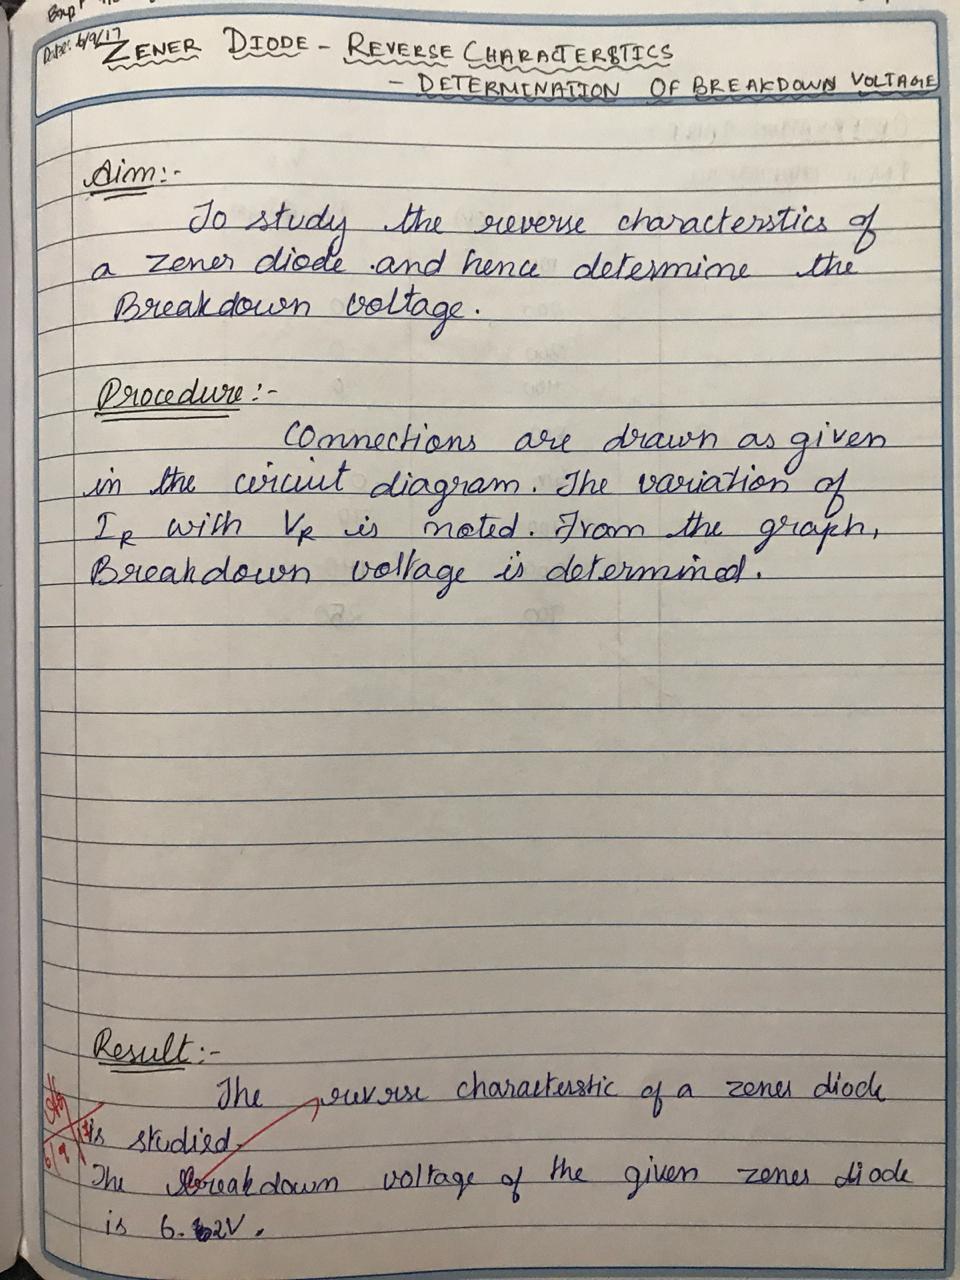 Date: 6/9/17
ZENER DIODE - REVERSE CHARACTERSTICS
- DETERMINATION OF BREAKDOWN VOLTAGE
Aim:-
To study the reverse characterstics of
a zener diode and hence determine the
Breakdown voltage.
Procedure:-
Connections are drawn as given
in the circuit diagram. The variation of
IR with VR is noted. From the graph,
Breakdown voltage is determined.
Result:-
The reverse characterstic of a zener diode
is studied.
The Breakdown voltage of the given zener diode
is